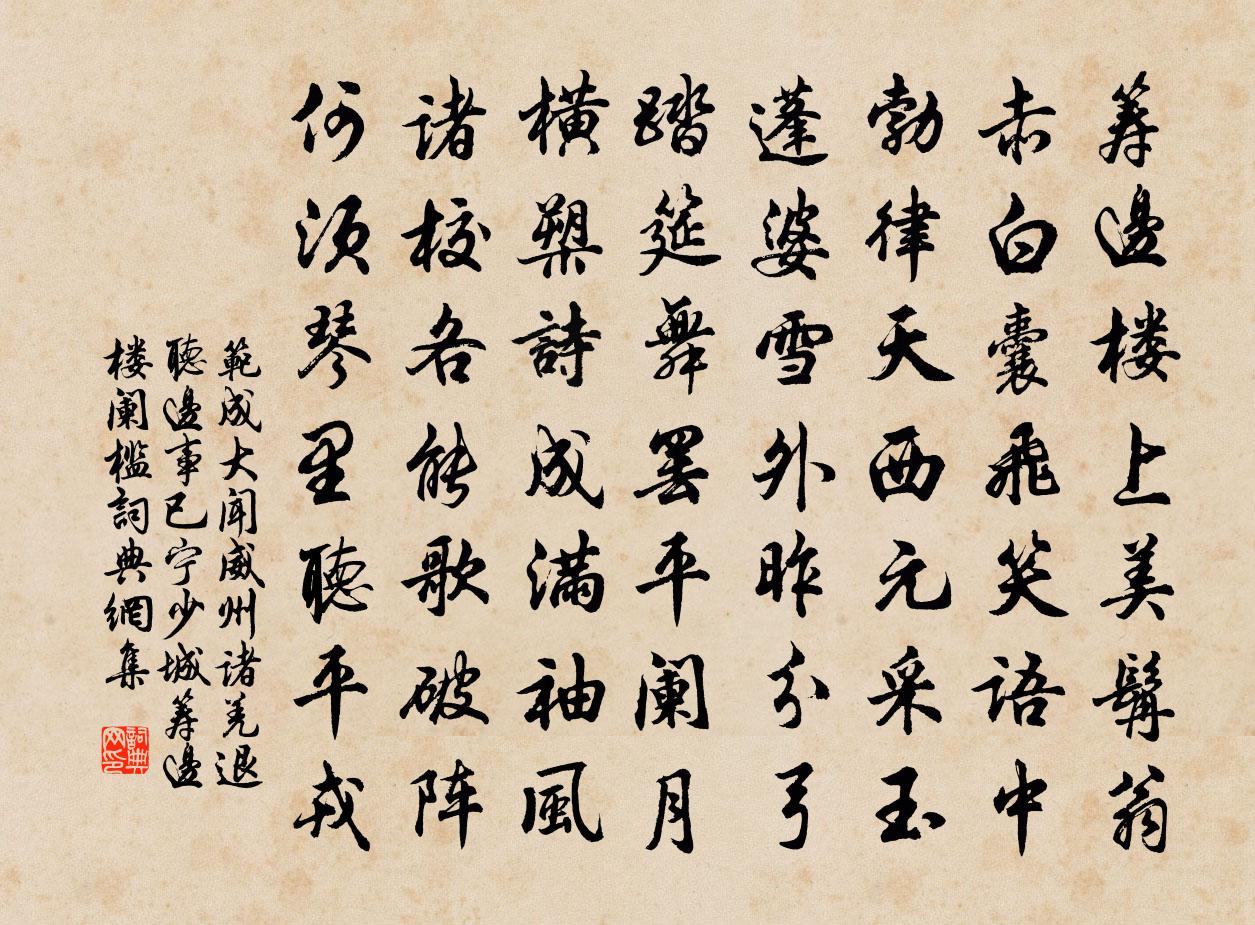 筹邊楼上美髯翁
赤白囊飛笑語中
勃律天西元采玉
蓬婆雪外昨分弓
踏筵舞罢平阑月
横槊詩成满袖風
诸校各能歌破阵
何须琴里聽平戎
範成大闻威州诸羌退
聽邊事已宁少城筹邊
楼阑槛詞典網集
詞典网印